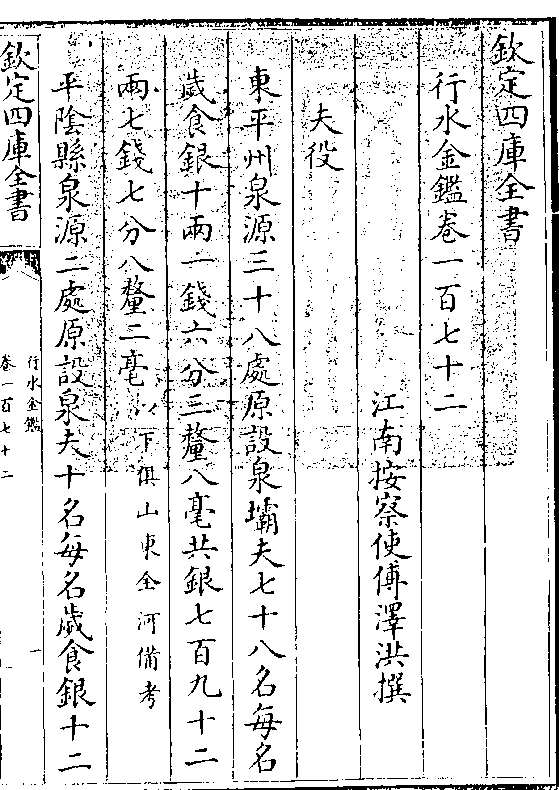 欽定四庫全書
行水金鑑卷一百七十二
江南按察使傅澤洪撰
夫役
東平州泉源三十八處原設泉壩夫七十八名每名
歲食銀十兩一錢六分三釐八毫共銀七百九十二
兩七錢七分八釐二毫以下俱山東全河備考
平陰縣泉源二處原設泉夫十名每名歲食銀十二
欽定四庫全書
行水金鑑
卷一百七十二
一